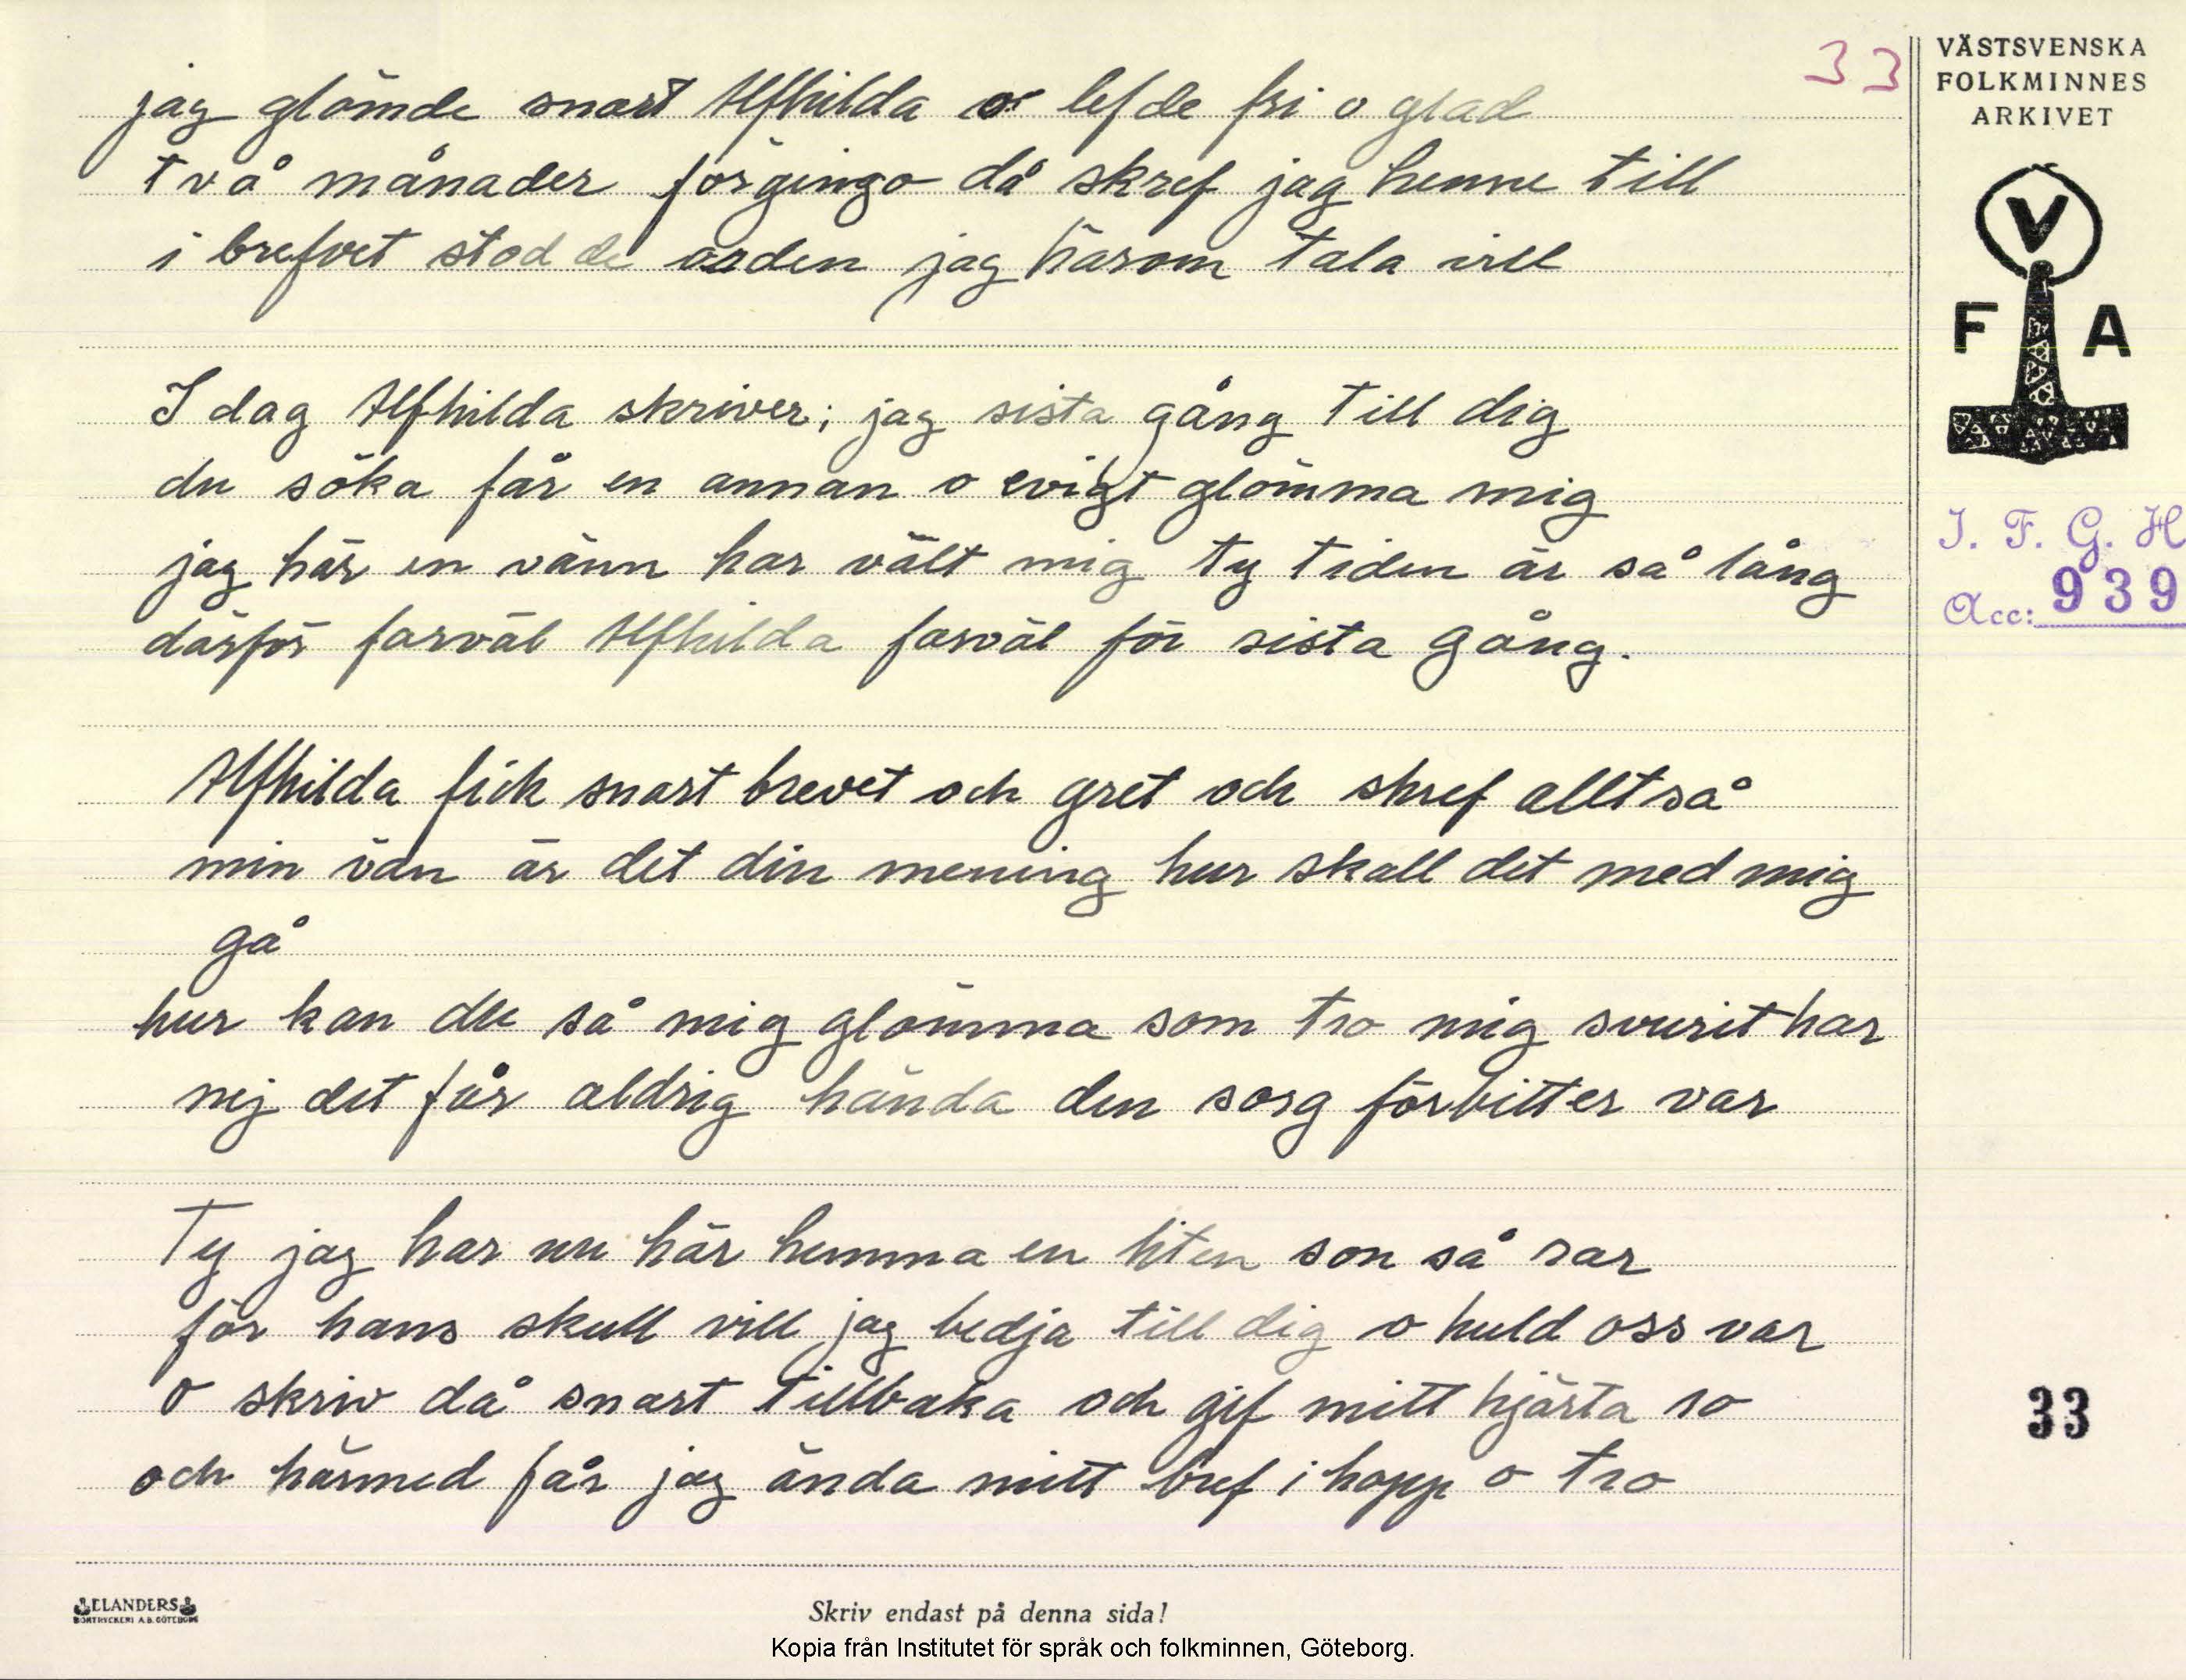 33
VÄSTSVENSKA
FOLKMINNES
ARKIVET
jag glömde snart Alfhilda o lefde fri o glad
två månader förgingo då skref jag henne till
i brefvet stod de orden jag härom tala vill
V
F A
I dag Alfhilda skriver; jag sista gång till dig
du söka får en annan o evigt glömma mig
jag här en vänn har vält mig ty tiden är så lång
därför farväl Alfhilda farväl för sista gång.
I. F. G. H
Acc: 939
Alfhilda fick snart brevet och gret och skref alltså
min vän är det din mening hur skall det med mig
gå
hur kan du så mig glömma som tro mig svurit har
nej det får aldrig hända den sorg förbitter var
Ty jag har nu här hemma en liten son så rar
för hans skull vill jag bedja till dig o huld oss var
o skriv då snart tillbaka och gif mitt hjärta ro
och härmed får jag ända mitt bref i hopp o tro
33
ELANDERS
BOKTRYCKERI A.B. GÖTEBORG
Skriv endast på denna sida!
Kopia från Institutet för språk och folkminnen, Göteborg.